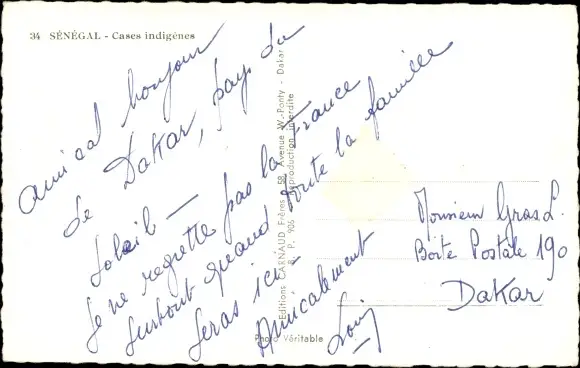 34 SÉNÉGAL - Cases indigènes
Amical bonjour
de Dakar, pays du
Soleil —
Je ne regrette pas la France
surtout quand toute la famille
seras ici -
Amicalement
Louis
Editions CARNAUD Frères - 58, Avenue W.-Ponty - Dakar
B. P. 906 - Reproduction interdite
Photo Véritable
Monsieur Gras L.
Boîte Postale 190
Dakar